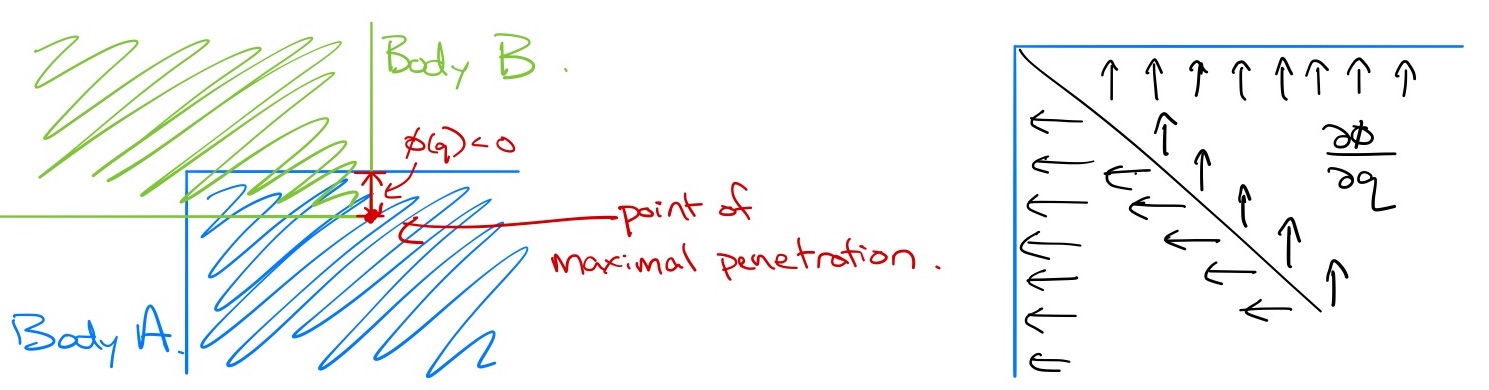 Body B.
ϕ(q) < 0
point of
maximal penetration.
Body A.
∂ϕ
∂q